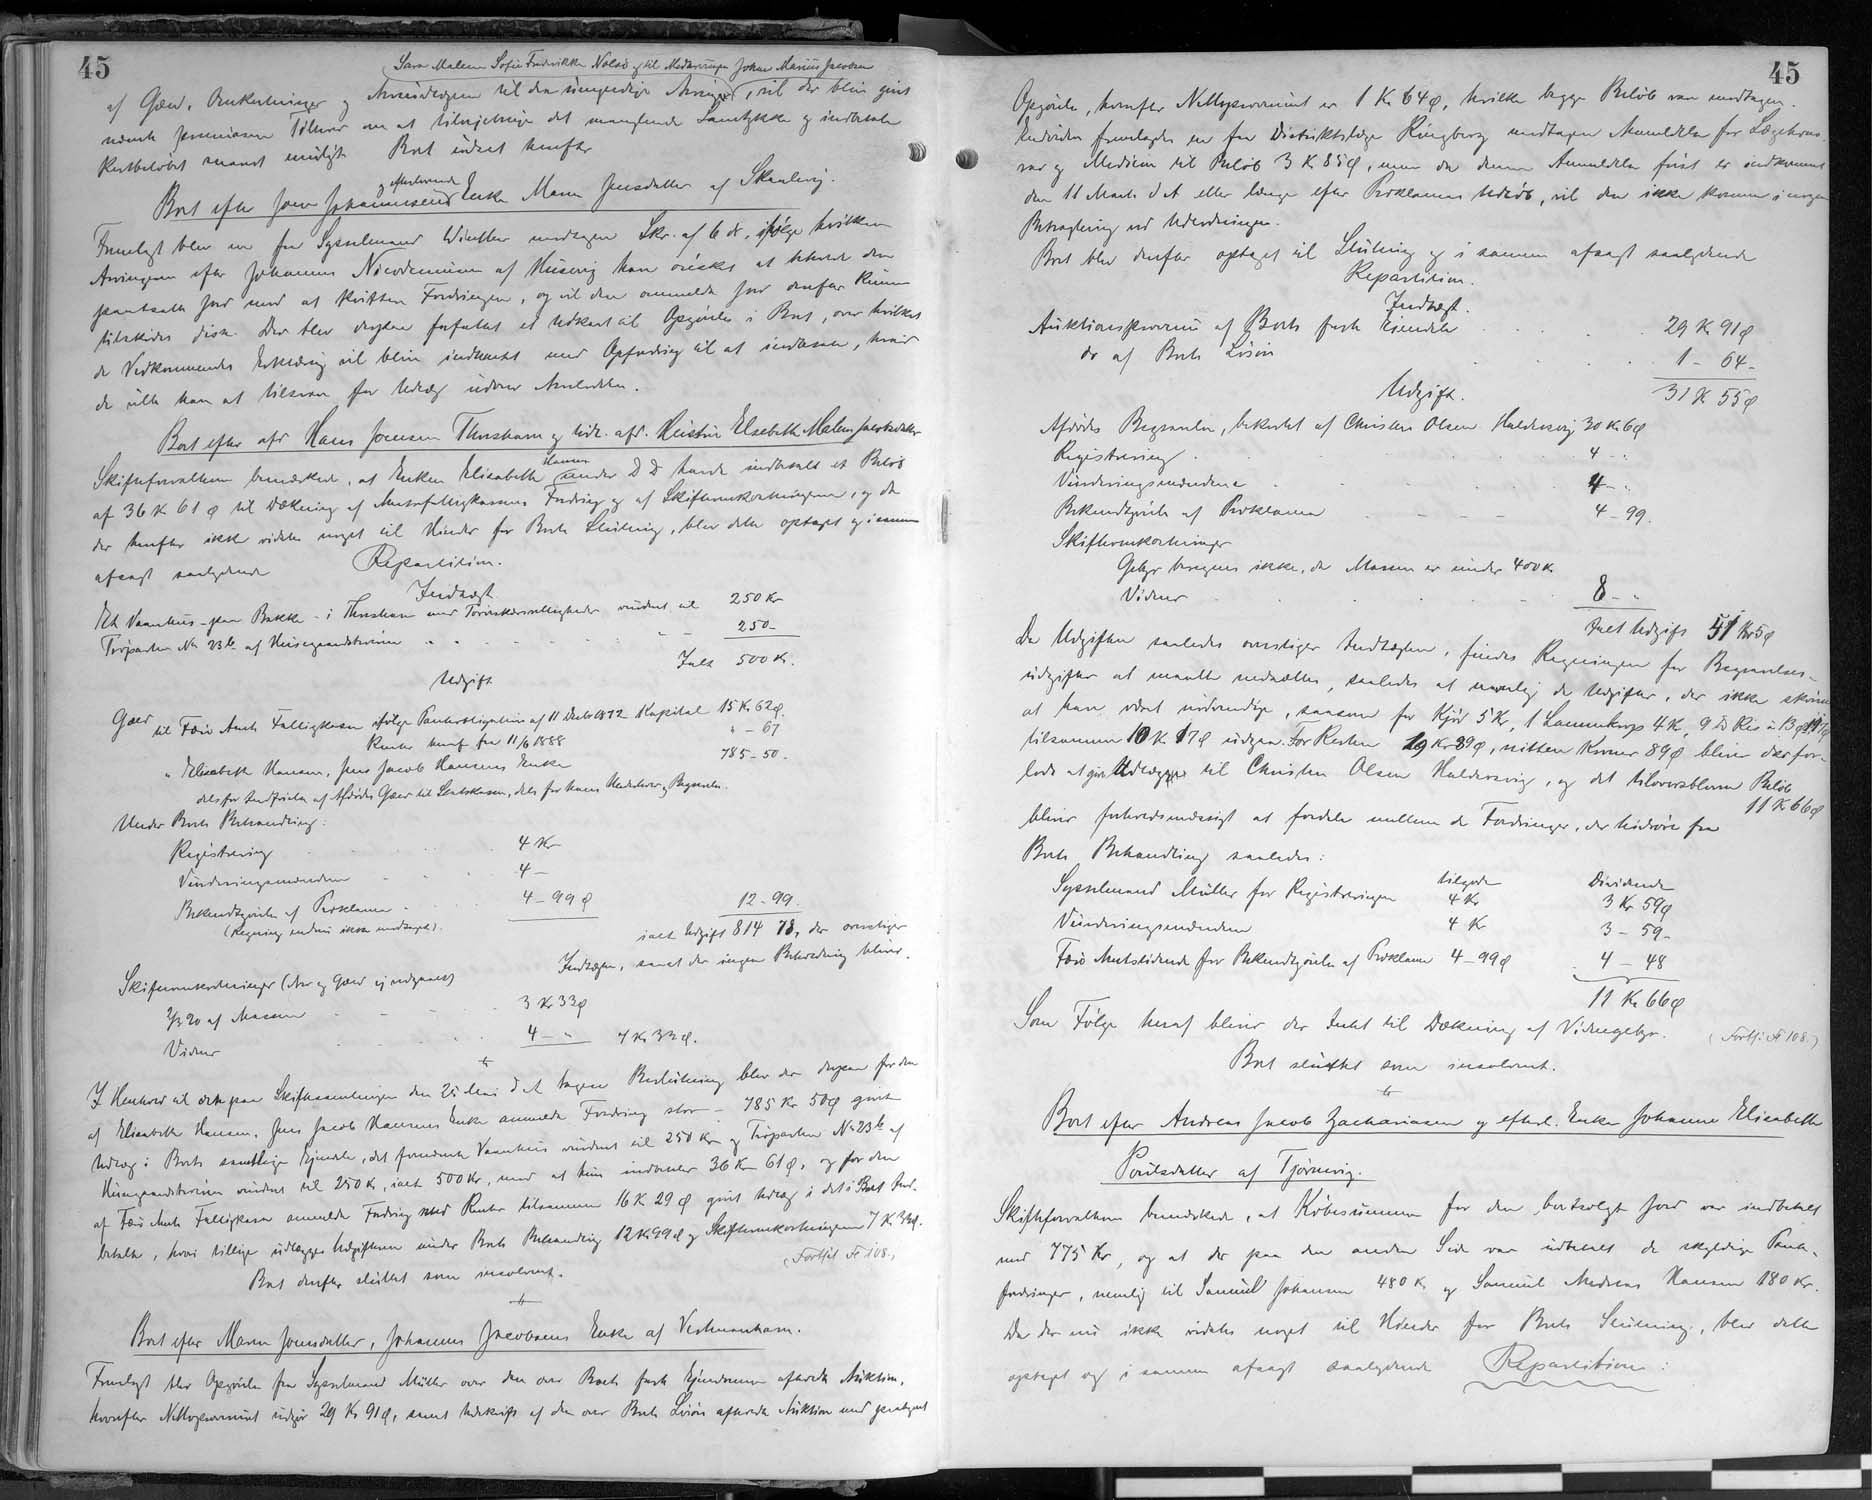 45
Sara Malene Sofie Frederikke Nolsø og til Medarvingen Johan Marius Jacobsen
af Gæld, Omkostninger og Arveudlægene til den umyndige Arving, vil der blive givet
nævnte Tilhold om at tilvejebringe det manglende Samtykke og indbetale
Restbeløbet snarest muligt. Boet udsat herefter
Boet efter Joen Johannesens og efterlevende Enke Maren Jensdatter af Skaalevig.
Fremlagt blev en fra Sysselmand Winther modtagen Skr. af 6 ds, ifølge hvilken
Arvingerne efter Johannes Nicodemusen af Husevig have ønsket at beholde den
pantsatte Jord mod at kvittere Fordringen, og vil den anmeldte Jord derefter kunne
tilskødes disse. Der blev derpaa forfattet et Udkast til Opgjørelse i Boet, over hvilket
de Vedkommendes Erklæring vil blive indhentet med Opfordring til at indbetale, hvad
de ville have at tilsvare for Udlæg udover Arvelodden.
Boet efter afd. Hans Joensen Thorshavn og tidl. afd. Hustru Elsebeth Malene Jacobsdatter
Skifteforvalteren bemærkede, at Enken Elisabeth Hansen under D D havde indbetalt et Beløb
af 36 K 61 Ø til Dækning af Amtsfattigkassens Fordring og af Skifteomkostningerne, og da
der herefter ikke vidstes noget til Hinder for Boets Slutning, blev dette optaget og i samme
afsagt saalydende Repartition.
Indtægt
Et Vaanhus paa Bakke i Thorshavn med Torveskærsrettigheder vurderet til 250 Kr
Trøparten No 23 b af Husegaardstrøerne " " - - - - " - 250 -
Ialt 500 K.
Udgift
Gæld
til Færø Amts Fattigkasse ifølge Panteobligation af 11 Decbr 1872 Kapital 15 K. 62 Ø.
Renter heraf fra 11/6 1888 " - 67
" Elisabeth Hansen, Jens Jacob Hansens Enke 785 - 50 -
dels for Indfrielse af Afdødes Gæld til Statskassen, dels for hans Underhold og Begravelse.
Under Boets Behandling:
Registrering 4 Kr
Vurderingsmændene 4 -
Bekendtgjørelse af Proklama 4 - 99 Ø 12 - 99.
(Regning endnu ikke modtaget).
ialt Udgift 814 78, der overstiger
Indtægten, samt der ingen Beholdning bliver.
Skifteomkostninger (Arv og Gæld ej vedgaaet)
2/3 % af Massen 3 Kr 33 Ø
Videre 4 - " 7 Kr 33 Ø.
I Henhold til den paa Skiftesamlingen den 25 Mai d A tagen Beslutning blev der derpaa for den
af Elisabeth Hansen, Jens Jacob Hansens Enke anmeldte Fordring stor - 785 Kr 50 Ø givet
Udlæg i Boets samtlige Ejendele, det fornævnte Vaanhus vurderet til 250 Kr og Trøparten No 23 b af
Husegaardstrøerne vurderet til 250 K, ialt 500 Kr, mod at hun indbetaler 36 Kr 61 Ø, og for den
af Færø Amts Fattigkasse anmeldte Fordring med Renter tilsammen 16 K 29 Ø givet Udlæg i det i Boet Ind-
betalte, hvori tillige udlægges Udgifterne under Boets Behandling 12 K 99 Ø og Skifteomkostningerne 7 K 33 Ø.
(Fortsat Fol 108.)
Boet derefter sluttet som insolvent.
Boet efter Maren Joensdatter, Johannes Jacobsens Enke af Vestmanhavn.
Fremlagt blev Opgjørelse fra Sysselmand Müller over den over Boets faste Ejendomme afholdte Auktion,
hvorefter Nettoprovenuet udgjør 29 Kr 91 Ø, samt Udskrift af den over Boets Løsøre afholdte Auktion med paategnet
45
Opgjørelse, hvorefter Nettoprovenuet er 1 Kr 64 Ø, hvilke begge Beløb var modtagen.
Endvidere fremlagdes en fra Distriktslæge Ringberg modtagen Anmeldelse for Lægehono-
rar og Medicin til Beløb 3 K 85 Ø, men da denne Anmeldelse først er indkommet
den 11 Marts d A eller længe efter Proklamas Udløb, vil den ikke komme i nogen
Betragtning ved Udlodningen.
Boet blev derefter optaget til Slutning og i samme afsagt saalydende
Repartition.
Indtægt.
Auktionsprovenu af Boets faste Ejendele 29 K 91 Ø
do af Boets Løsøre 1 - 64 -
31 K 55 Ø
Udgift.
Afdødes Begravelse, bekostet af Christen Olsen Haldersvig 30 Kr 6 Ø
Registrering 4 - "
Vurderingsmændene 4 - "
Bekendtgjørelse af Proklama 4 - 99.
Skifteomkostninger
Gebyr beregnes ikke, da Massen er under 400 K
Videre 8 - "
Ialt Udgift 51 Kr 5 Ø
Da Udgiften saaledes overstiger Indtægten, findes Regningen for Begravelses-
udgifter at maatte nedsættes, saaledes at nemlig de Udgifter, der ikke skønnes
at have været nødvendige, saasom for Kjød 5 Kr, 1 Lammekrop 4 K, 9 ℔ Ris a 13 Ø 1 K 17 Ø
tilsammen 10 K 17 Ø udgaar. For Resten 19 Kr 89 Ø, nitten Kroner 89 Ø bliver der for-
lods at give Udlæg til Christen Olsen Haldersvig, og det tiloversblevne Beløb
11 K 66 Ø
bliver forholdsmæssigt at fordele mellem de Fordringer, der hidrøre fra
Boets Behandling saaledes:
tilgode Dividende
Sysselmand Müller for Registreringen 4 Kr 3 Kr 59 Ø
Vurderingsmændene 4 Kr 3 - 59 -
Færø Amtstidende for Bekendtgjørelse af Proklama 4 - 99 Ø 4 - 48
11 Kr 66 Ø
Som Følge heraf bliver der Intet til Dækning af Videregebyr.
(Forts: Fol 108.)
Boet sluttet som insolvent.
Boet efter Andreas Jacob Zachariasen og efterl. Enke Johanne Elisabeth
Poulsdatter af Tjørnevig.
Skifteforvalteren bemærkede, at Købesummen for den bortsolgte Jord var indbetalt
med 775 Kr, og at der paa den anden Side var udbetalt de skyldige Pante-
fordringer, nemlig til Samuel Johansen 480 K og Samuel Andreas Hansen 180 Kr.
Da der nu ikke vidstes noget til Hinder for Boets Slutning, blev dette
optaget og i samme afsagt saalydende Repartition: